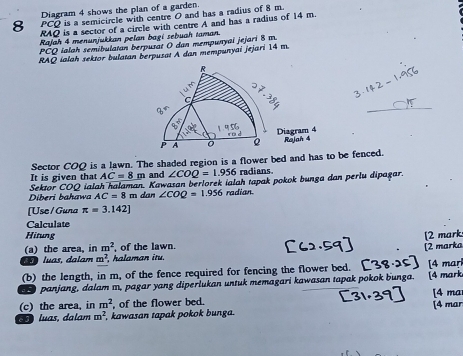 8
Diagram 4 shows the plan of a garden.
PCQ is a semicircle with centre O and has a radius of 8 m.
RAQ is a sector of a circle with centre A and has a radius of 14 m.
Rajah 4 menunjukkan pelan bagi sebuah taman.
PCQ ialah semibulatan berpusat O dan mempunyai jejari 8 m.
RAQ ialah sektor bulatan berpusat A dan mempunyai jejari 14 m.
R
14m
27.384
3.142-1.956
C
8m
8m
1.186
1.956
rad
P A O Q
Diagram 4
Rajah 4
Sector COQ is a lawn. The shaded region is a flower bed and has to be fenced.
It is given that AC = 8 m and ∠COQ = 1.956 radians.
Sektor COQ ialah halaman. Kawasan berlorek ialah tapak pokok bunga dan perlu dipagar.
Diberi bahawa AC = 8 m dan ∠COQ = 1.956 radian.
[Use/Guna π = 3.142]
Calculate
Hitung
(a) the area, in m², of the lawn. [62.59] [2 mark
luas, dalam m², halaman itu. [2 marka
(b) the length, in m, of the fence required for fencing the flower bed. [38.25] [4 mar
panjang, dalam m, pagar yang diperlukan untuk memagari kawasan tapak pokok bunga. [4 mark
(c) the area, in m², of the flower bed. [31.39] [4 ma
luas, dalam m², kawasan tapak pokok bunga. [4 mar